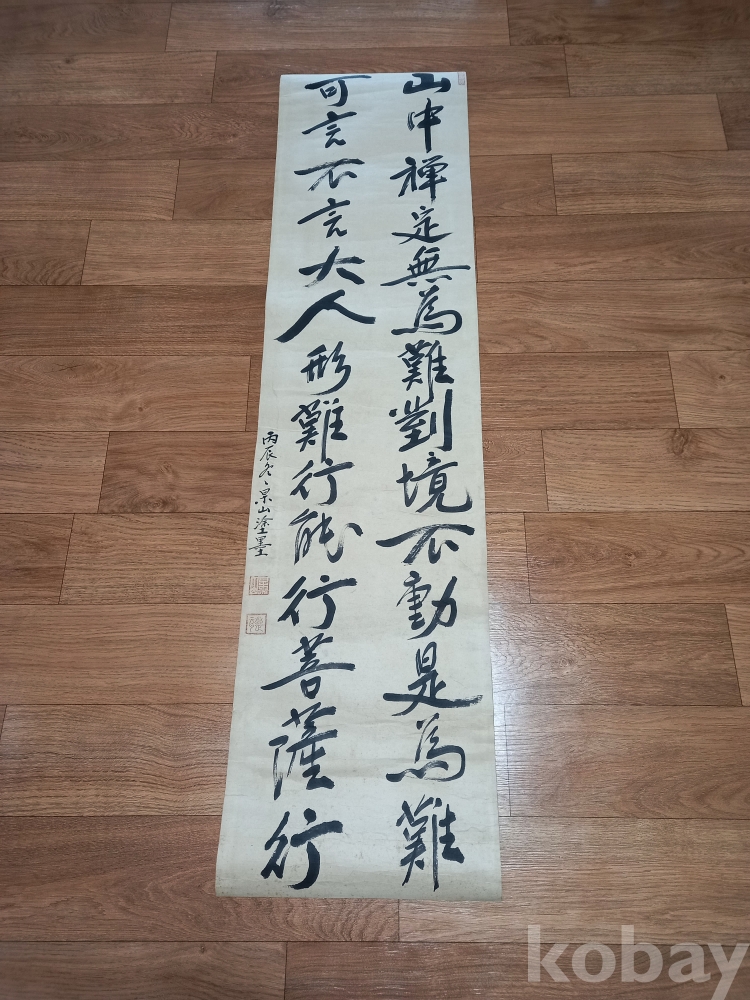 山中禪定無為難對境不動是為難
可言不言大人形難行能行菩薩行
丙辰冬景山塗墨
kobay